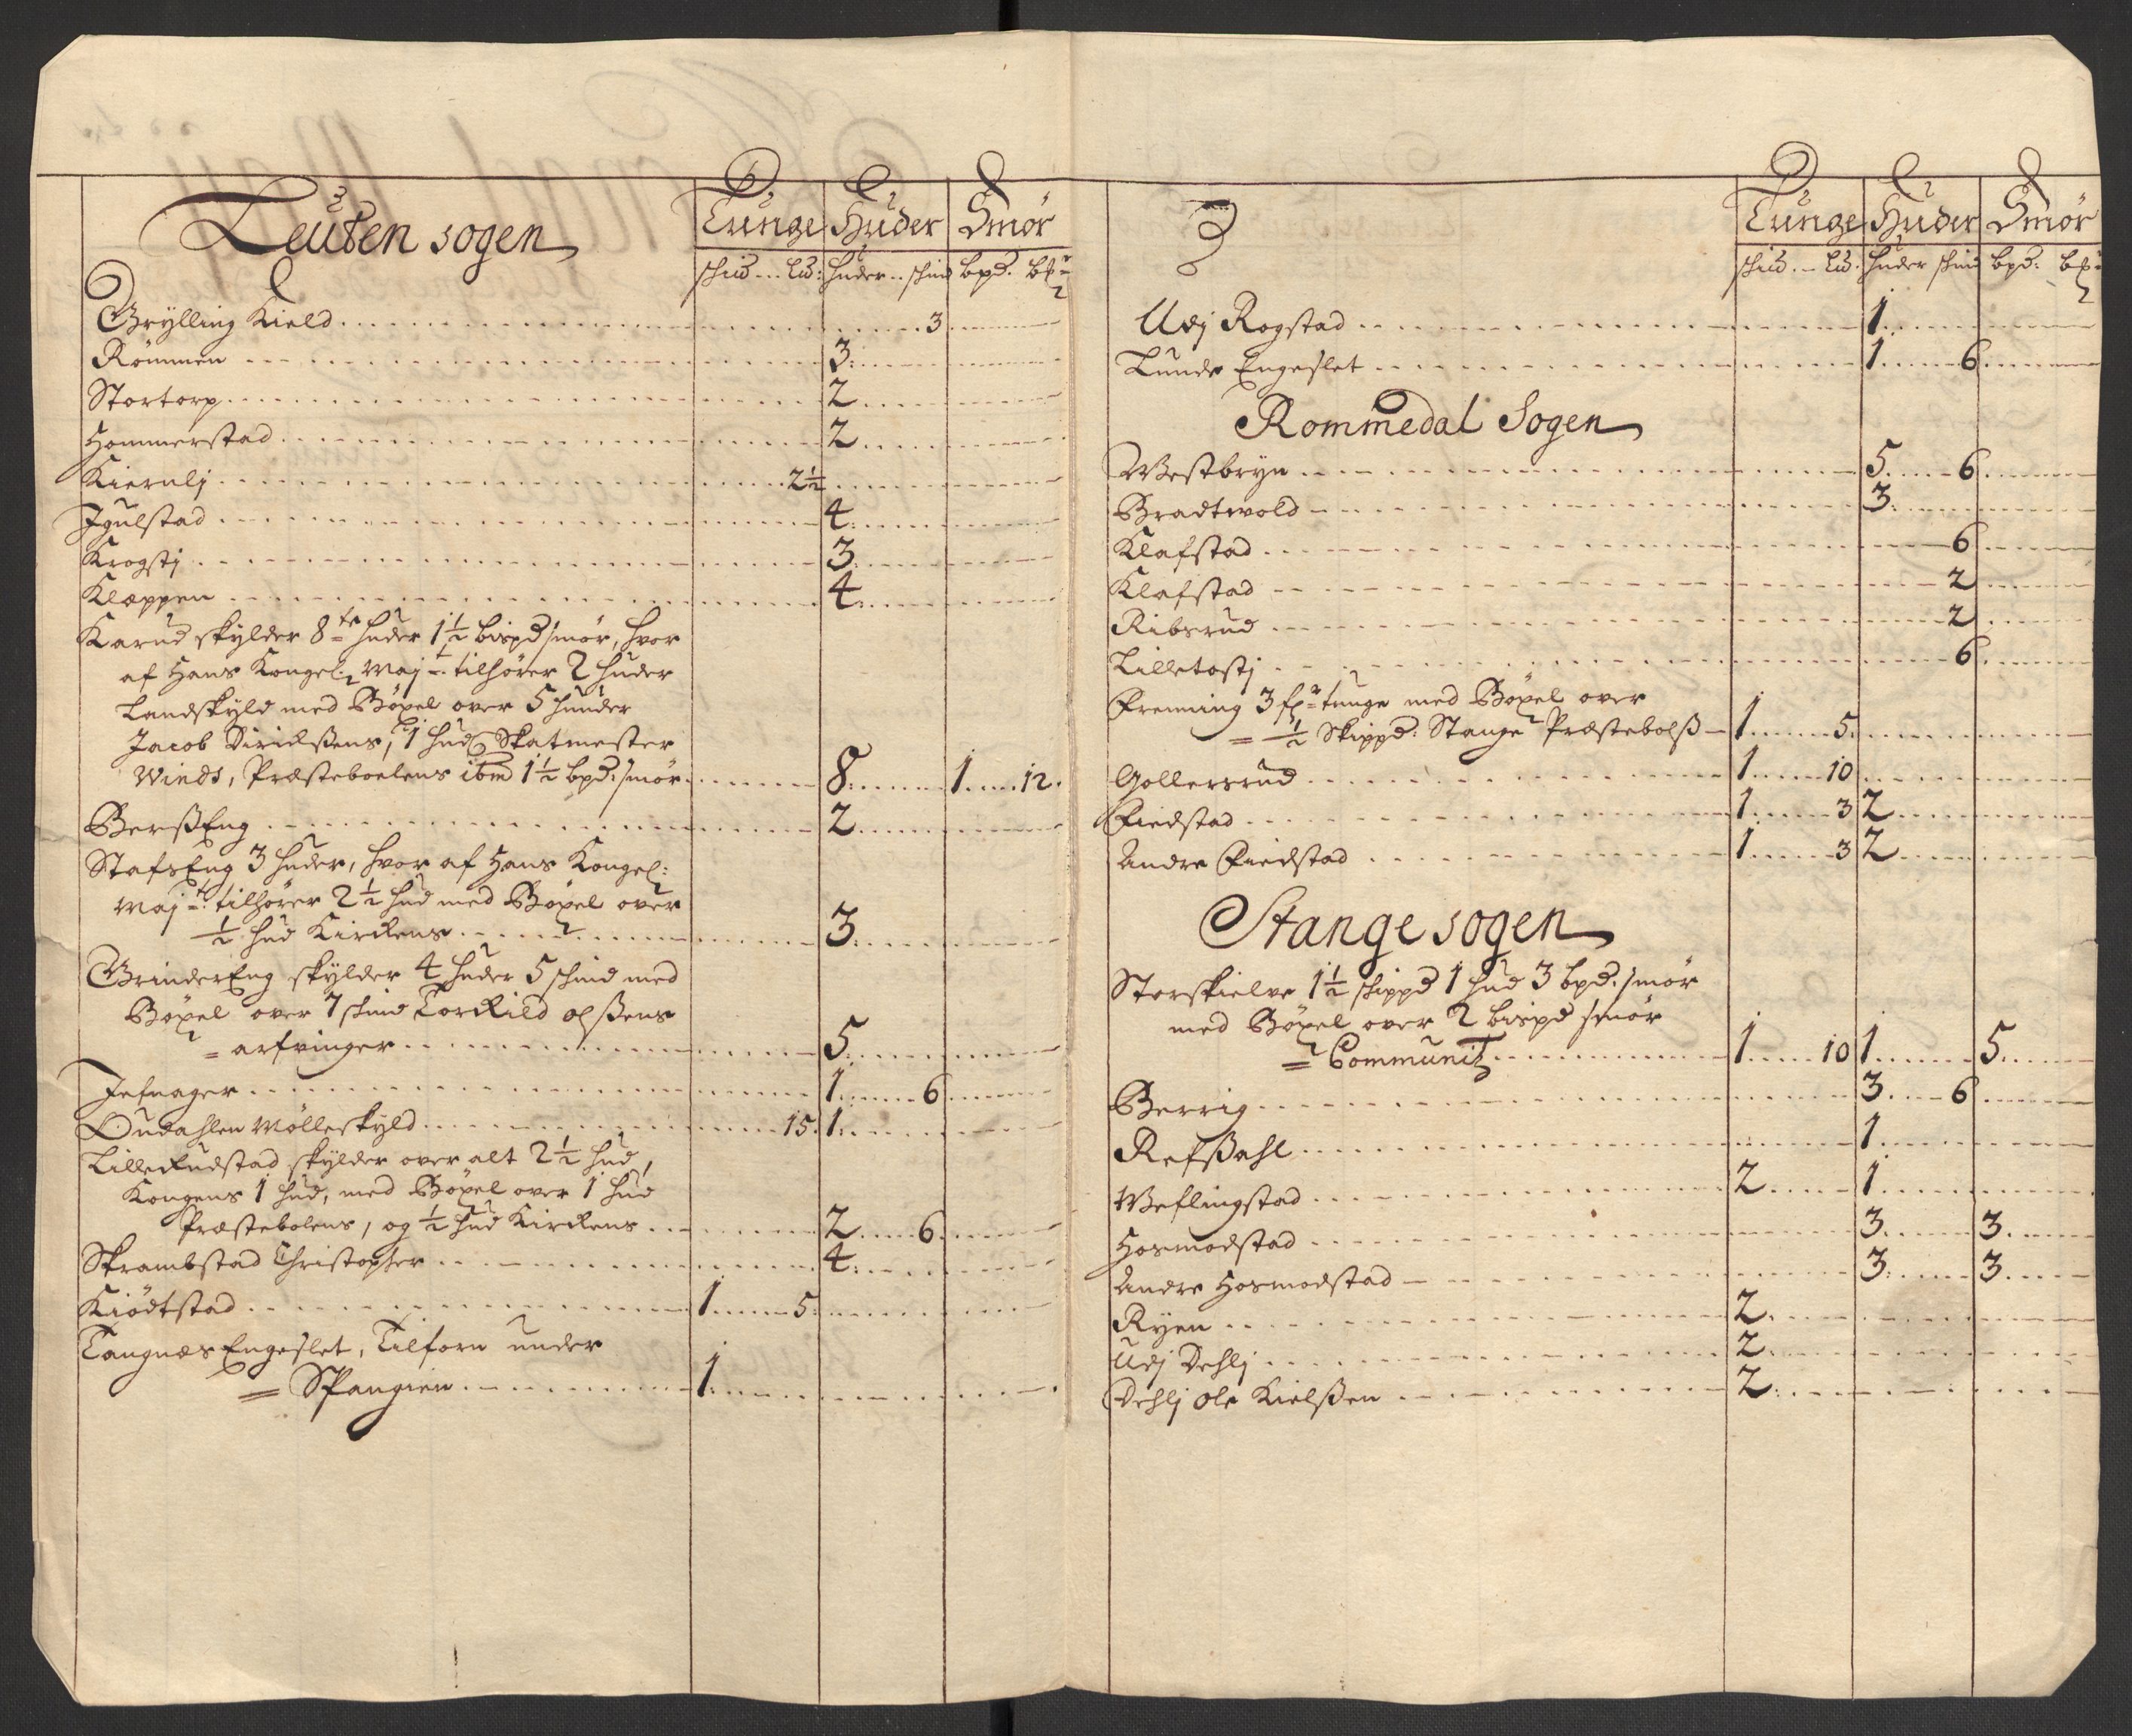 Leuten sogen
Tunge Huder Smør
schid Lid: Huder schind bpd. b
Grylling Kield 3
Rømmen 3
Stortorp 2
Hommerstad 2
Kiernlj 2½
Igulstad 4
Krogstj 3
Klæppen 4
Karud skylder 8te Huder 1½ bispd smør, hvor
af Hans Kongel: May:t tilhører 2 Huder
Landskyld med Bøxel over 5 Hunder
Jacob Dirichsens, 1 Hud Skatmester
Windt, Præsteboelens ibm 1½ bpd: smør 8 1 12
BersEng 2
StafsEng 3 Huder, hvor af Hans Kongel:
May:t tilhører 2½ Hud med Bøxel over
½ Hud Kirckens 3
GrinderEng skylder 4 Huder 5 schind med
Bøxel over 7 schind Torkild olsens
= arfvinger 5
Jefnager 1 6
Ondahlen Mølleskyld 15 1
Lille Kudstad skylder over alt 2½ Hud,
Kongens 1 Hud, med Bøxel over 1 Hud
Præstebolens, og ½ Hud Kirckens 2 6
Skrambstad Christopher 4
Kiødtstad 1 5
Tangnæs Engeslet, Tilforn under
= Spangien 1
Tunge Huder Smør
schid Lid: Huder schind bpd: b
Udj Rogstad 1
Lunde Engeslet 1 6
Rommedal Sogen
Westbryn 5 6
Bradtwold 3
Klafstad 6
Klafstad 2
Ribsrud 2
Lilletostj 6
Frenning 3 fr tunge med Bøxel over
= ½ Skippd: Stange Præstebolss 1 5
Gollersrud 1 10
Fiedstad 1 3 2
Andre Fiedstad 1 3 2
Stange sogen
Storskielve 1½ schippd 1 Hud 3 bpd: smør
med Bøxel over 2 bispd smør
= Communitz 1 10 1 5
Berrig 3 6
Refsahl 1
Weflingstad 2 1
Hosmodstad 3 3
Andre Hosmodstad 3 3
Ryen 2
Udj Dehlj 2
Dehlj Ole Kielssen 2